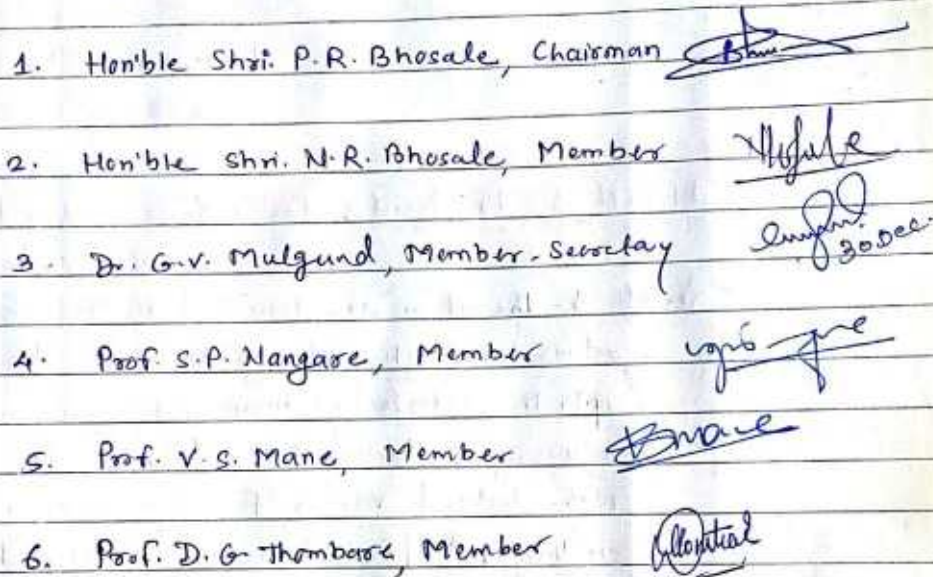 1. Hon'ble Shri. P.R. Bhosale, Chairman
2. Hon'ble Shri. N.R. Bhosale, Member
3. Dr. G.V. Mulgund, Member-Secretay
30 Dec.
4. Prof. S.P. Nangare, Member
5. Prof. V.S. Mane, Member
6. Prof. D.G. Thombare, Member